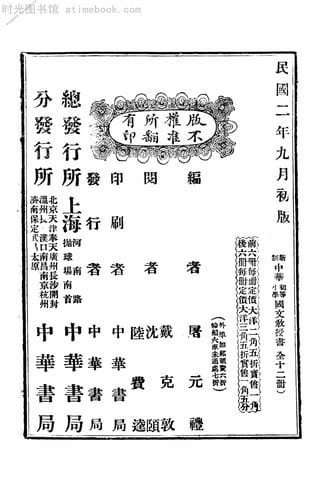 时光图书馆 atimebook.com
民國二年九月初版
新制 中華 初等小學 國文敎授書 全十二冊
前六冊每冊定價大洋二角五折實售一角
後六冊每冊定價大洋三角五折實售一角五分
外埠加郵匯費六折
輪船火車未通處七折
版權所有
不准翻印
編者 屠元禮
閱者 戴克敦 沈頤 陸費逵
印刷者 中華書局
發行者 中華書局
總發行所 上海 河南路 拋球場南首 中華書局
分發行所 北京天津奉天廣州長沙開封
漢口南昌南京杭州
濟南保定
太原 中華書局